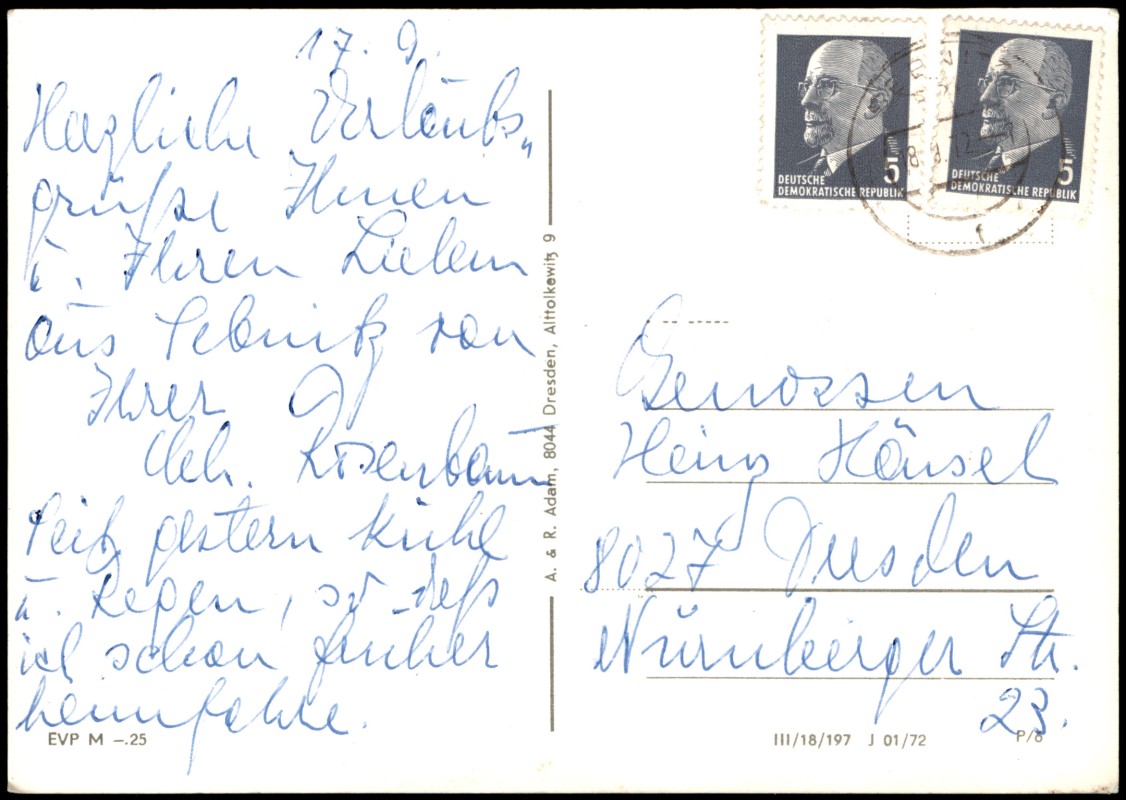 17. 9.
Herzliche Urlaubs-
grüße Ihnen
u. Ihren Lieben
aus Sebnitz von
Ihrer
Rosenbaum
Seit gestern kühl
u. Regen, so daß
ich schon früher
heimfahre.
EVP M –.25
A. & R. Adam, 8044 Dresden, Alttolkewitz 9
5
DEUTSCHE
DEMOKRATISCHE REPUBLIK
5
DEUTSCHE
DEMOKRATISCHE REPUBLIK
Genossen
Heinz Hänsel
8027 Dresden
Nürnberger Str.
23.
III/18/197 J 01/72
P/8